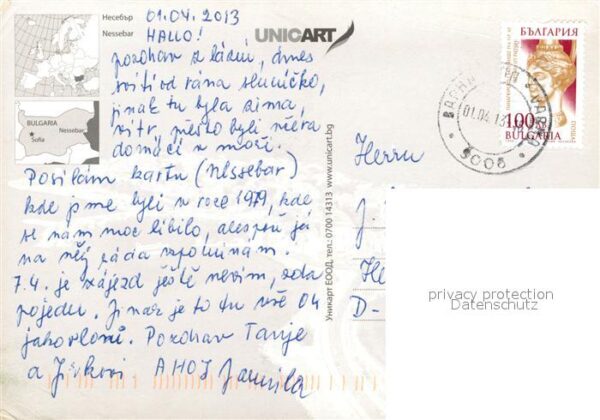 Несебър
Nessebar
BULGARIA
Sofia
Nessebar
UNICART
01.04.2013
HALLO!
pozdrav z lázní, dnes
svítí od rána sluníčko,
jinak tu byla zima,
vítr, přesto byli včera
domácí v moři.
Posílám kartu (Nessebar)
kde jsme byli v roce 1979, kde
se nám moc líbilo, alespoň já
na něj ráda vzpomínám.
7.4. je zájezd ještě nevím, zda
pojedu. Jinak je to tu vše O4
jako vloni. Pozdrav Tanje
a Jirkovi AHOJ Jarmila
Уникарт ЕООД, тел.: 0700 14313 www.unicart.bg
БЪЛГАРИЯ
1.00
BULGARIA
ПОЩА
ВАРНА
01.04.13
9006
Herrn
J.
He
D-
privacy protection
Datenschutz